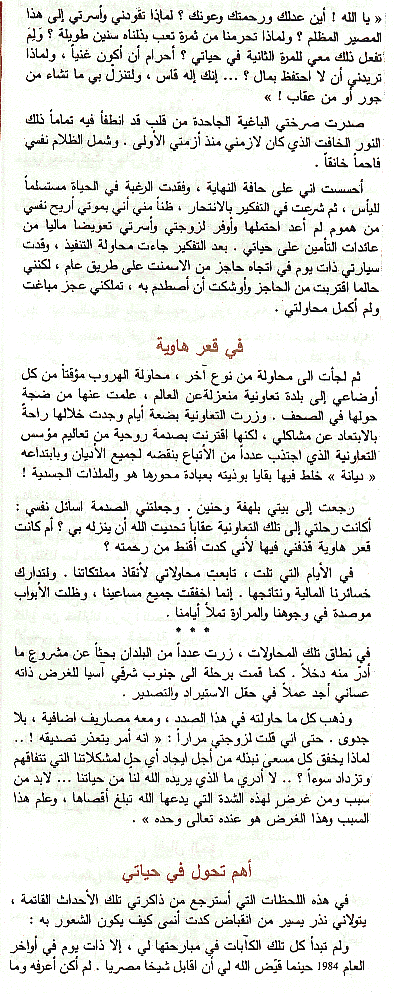 « يا الله ! أين عدلك ورحمتك وعونك ؟ لماذا تقودني وأسرتي إلى هذا
المصير المظلم ؟ ولماذا تحرمنا من ثمرة تعب بذلناه سنين طويلة ؟ وَلِمَ
تفعل ذلك معي للمرة الثانية في حياتي ؟ أحرام أن أكون غنياً ، ولماذا
تريدني أن لا احتفظ بمال ؟ ... إنك إله قاس ، ولتنزل بي ما تشاء من
جور أو من عقاب ! »
صدرت صرختي الباغية الجاحدة من قلب قد انطفأ فيه تماماً ذلك
النور الخافت الذي كان لازمني منذ أزمتي الأولى . وشمل الظلام نفسي
فاحماً خانقاً .
أحسست اني على حافة النهاية ، وفقدت الرغبة في الحياة مستسلماً
لليأس ، ثم شرعت في التفكير بالانتحار ، ظناً مني أني بموتي أريح نفسي
من هموم لم أعد احتملها وأوفر لزوجتي وأسرتي تعويضا ماليا من
عائدات التأمين على حياتي . بعد التفكير جاءت محاولة التنفيذ ، وقدت
سيارتي ذات يوم في اتجاه حاجز من الاسمنت على طريق عام ، لكنني
حالما اقتربت من الحاجز وأوشكت أن أصطدم به ، تملكني عجز مباغت
ولم أكمل محاولتي .
في قعر هاوية
ثم لجأت الى محاولة من نوع آخر ، محاولة الهروب مؤقتاً من كل
أوضاعي إلى بلدة تعاونية منعزلة عن العالم ، علمت عنها من ضجة
حولها في الصحف . وزرت التعاونية بضعة أيام وجدت خلالها راحةً
بالابتعاد عن مشاكلي ، لكنها اقترنت بصدمة روحية من تعاليم مؤسس
التعاونية الذي اجتذب عدداً من الأتباع بنقضه لجميع الأديان وبابتداعه
« ديانة » خلط فيها بقايا بوذيته بعبادة محورها هو والملذات الجسدية !
رجعت إلى بيتي بلهفة وحنين . وجعلتني الصدمة اسائل نفسي :
أكانت رحلتي إلى تلك التعاونية عقاباً تحديت الله أن ينزله بي ؟ أم كانت
قعر هاوية قذفني فيها لأني كدت أقنط من رحمته ؟
في الأيام التي تلت ، تابعت محاولاتي لأنقاذ مملكاتنا . ولتدارك
خسائرنا المالية ونتائجها . إنما اخفقت جميع مساعينا ، وظلت الأبواب
موصدة في وجوهنا والمرارة تملأ أيامنا .
* * *
في نطاق تلك المحاولات ، زرت عدداً من البلدان بحثاً عن مشروع ما
أدرّ منه دخلاً . كما قمت برحلة الى جنوب شرقي آسيا للغرض ذاته
عساني أجد عملاً في حقل الاستيراد والتصدير .
وذهب كل ما حاولته في هذا الصدد ، ومعه مصاريف اضافية ، بلا
جدوى . حتى اني قلت لزوجتي مراراً : « انه أمر يتعذر تصديقه ! ..
لماذا يخفق كل مسعى نبذله من أجل ايجاد أي حل لمشكلاتنا التي تتفاقم
وتزداد سوءاً ؟ .. لا أدري ما الذي يريده الله لنا من حياتنا ... لابد من
سبب ومن غرضٍ لهذه الشدة التي يدعها الله تبلغ أقصاها ، وعلم هذا
السبب وهذا الغرض هو عنده تعالى وحده » .
أهم تحول في حياتي
في هذه اللحظات التي أسترجع من ذاكرتي تلك الأحداث القاتمة ،
يتولاني نذر يسير من انقباض كدت أنسى كيف يكون الشعور به :
ولم تبدأ كل تلك الكآبات في مبارحتها لي ، إلا ذات يوم في أواخر
العام 1984 حينما قيّض الله لي أن اقابل شيخا مصريا . لم أكن أعرفه وما